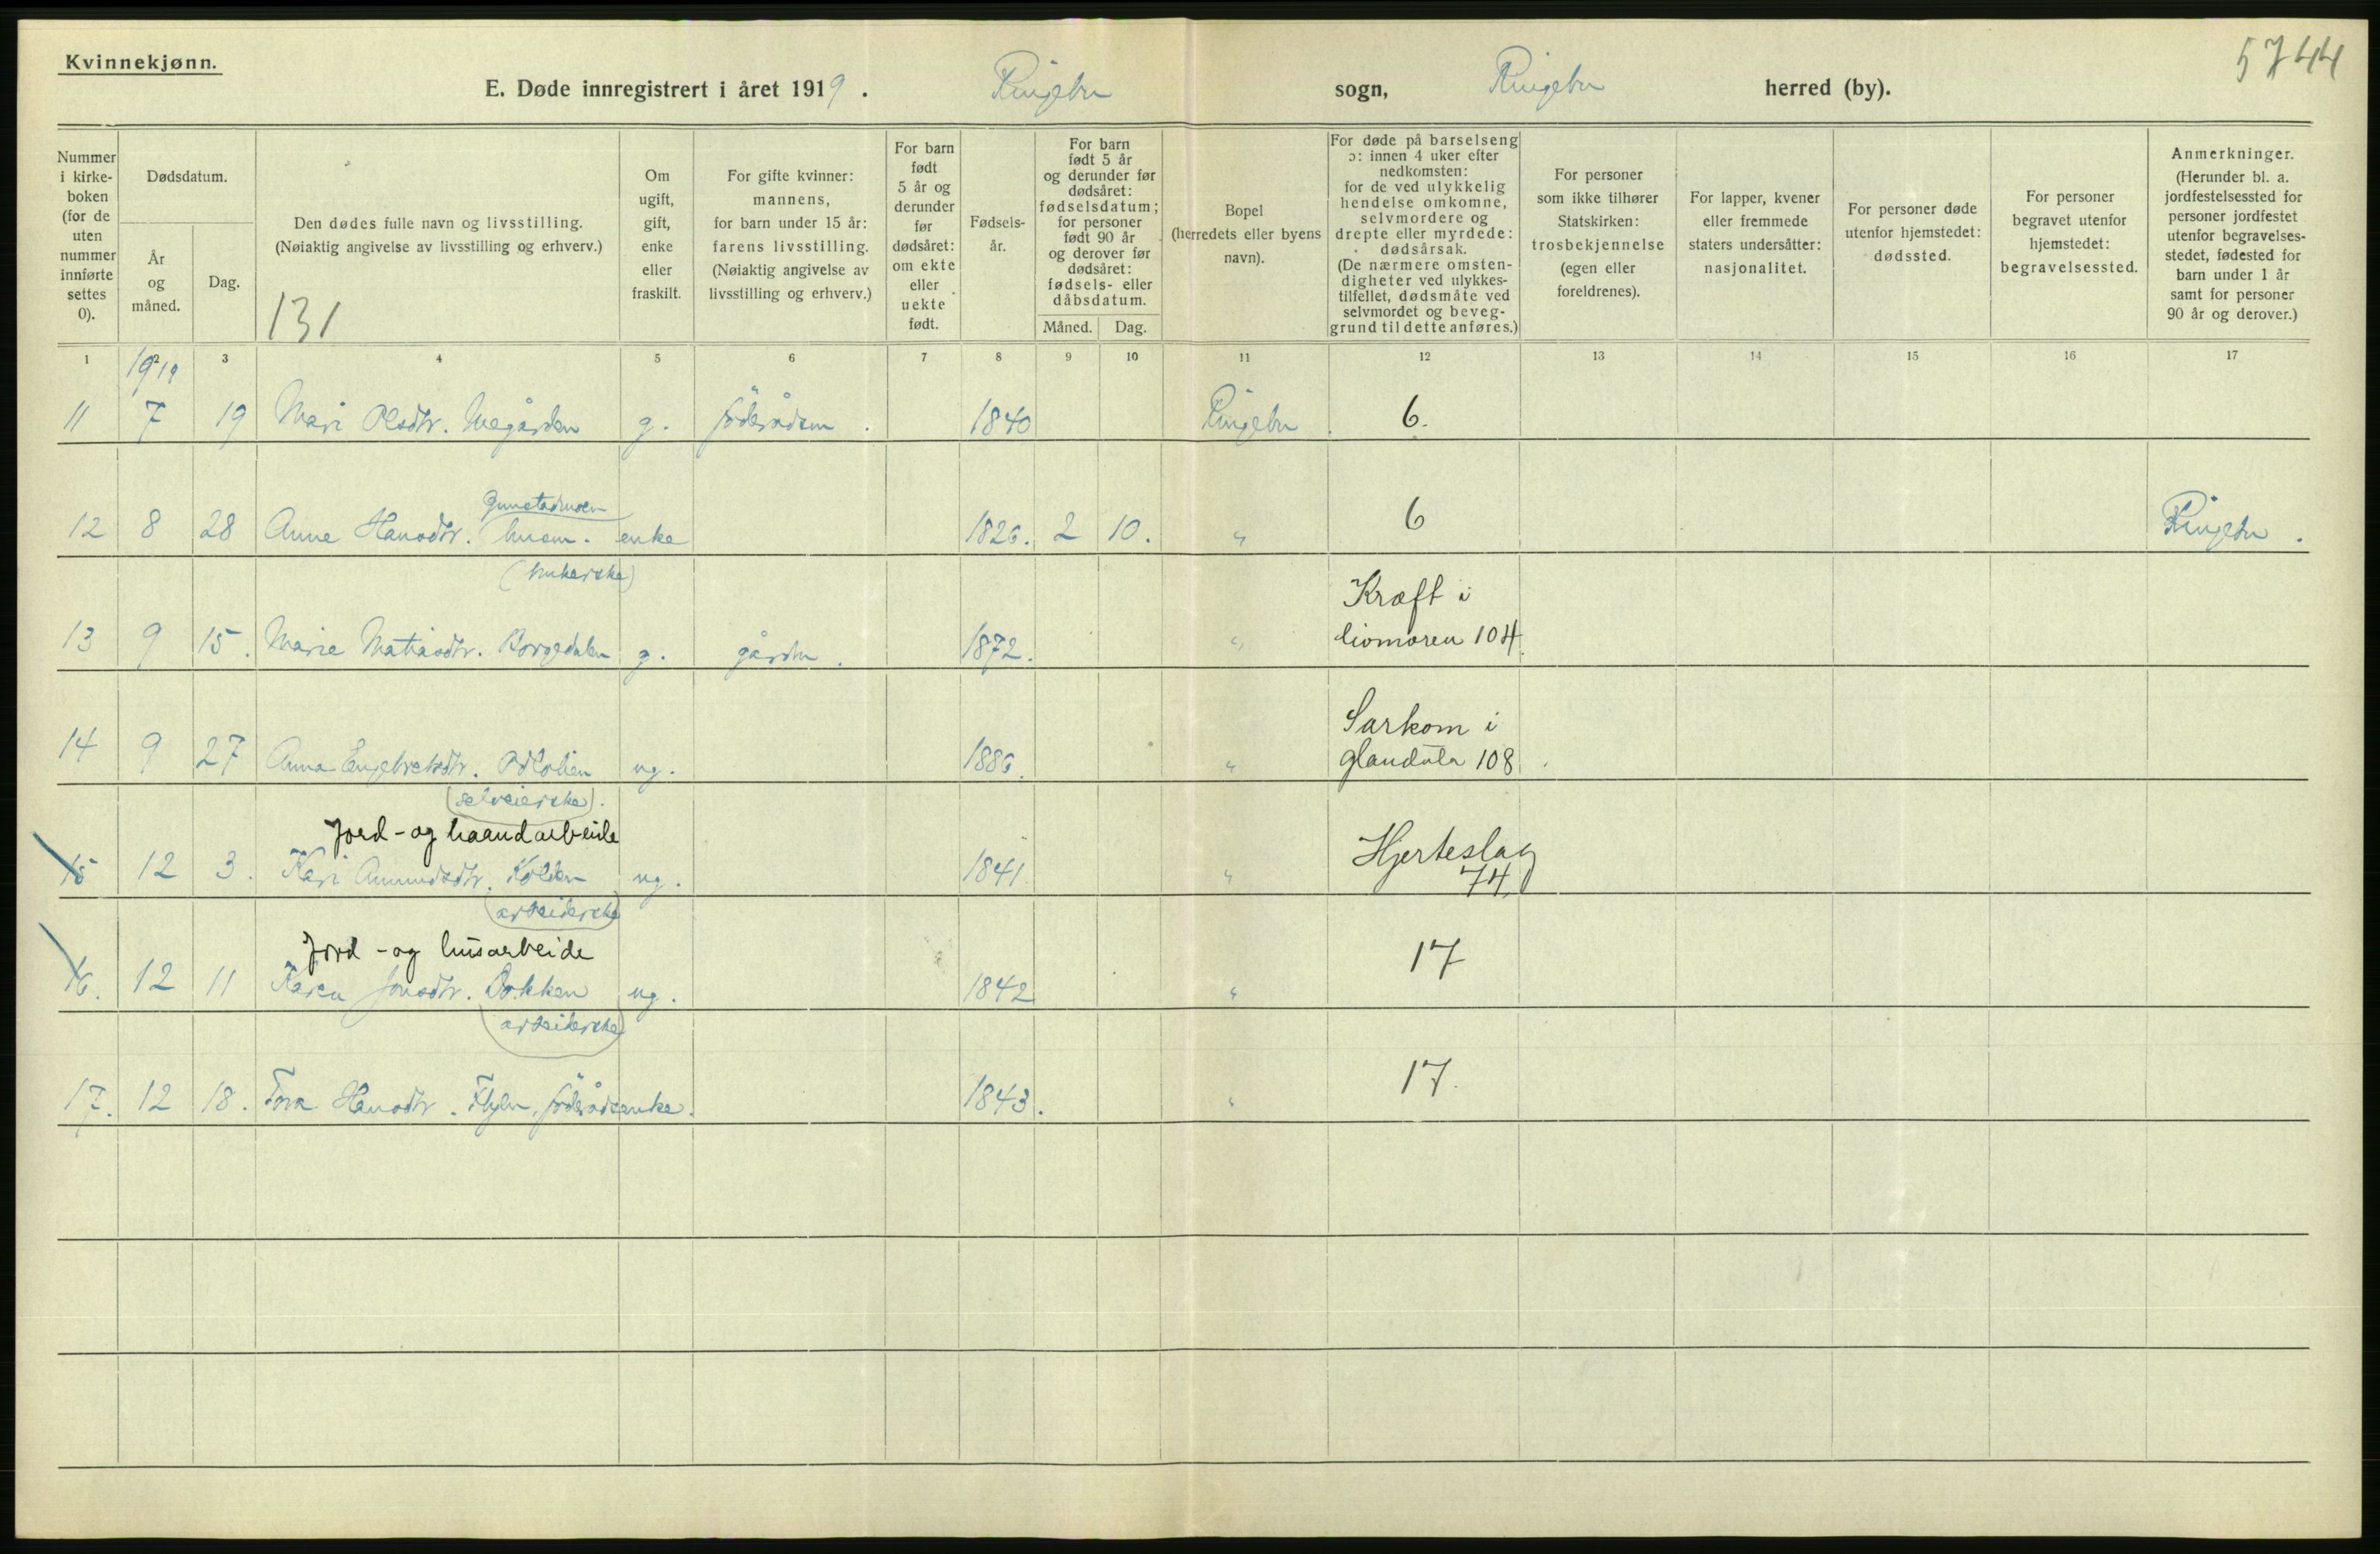 Kvinnekjønn.
5744
E. Døde innregistrert i året 1919. Ringebu sogn, Ringebu herred (by).
Nummer i kirke-boken (for de uten nummer innførte settes 0).
Dødsdatum.
År og måned.
Dag.
Den dødes fulle navn og livsstilling.
(Nøiaktig angivelse av livsstilling og erhverv.)
131
Om ugift, gift, enke eller fraskilt.
For gifte kvinner: mannens, for barn under 15 år: farens livsstilling. (Nøiaktig angivelse av livsstilling og erhverv.)
For barn født 5 år og derunder før dødsåret: om ekte eller uekte født.
Fødsels-år.
For barn født 5 år og derunder før dødsåret: fødselsdatum; for personer født 90 år og derover før dødsåret: fødsels- eller dåbsdatum.
Måned. Dag.
Bopel (herredets eller byens navn).
For døde på barselseng ɔ: innen 4 uker efter nedkomsten: for de ved ulykkelig hendelse omkomne, selvmordere og drepte eller myrdede: dødsårsak. (De nærmere omsten-digheter ved ulykkes-tilfellet, dødsmåte ved selvmordet og beveg-grund til dette anføres.)
For personer som ikke tilhører Statskirken: trosbekjennelse (egen eller foreldrenes).
For lapper, kvener eller fremmede staters undersåtter: nasjonalitet.
For personer døde utenfor hjemstedet: dødssted.
For personer begravet utenfor hjemstedet: begravelsessted.
Anmerkninger. (Herunder bl. a. jordfestelsessted for personer jordfestet utenfor begravelses-stedet, fødested for barn under 1 år samt for personer 90 år og derover.)
1 2 3 4 5 6 7 8 9 10 11 12 13 14 15 16 17
1919
11 7 19 Mari Olsdtr. g. föderådsm. 1840 Ringebu 6.
Gunstadmoen
12 8 28 Anne Hansdtr. husm. enke 1826. 2 10. " 6 Ringebu.
(brukerske)
Kræft i
13 9 15. Marie Matiasdtr. Borgedalen g. gårdbr. 1872. " livmoren 104.
Sarkom i
14 9 27 Anna Engebretsdtr. ug. 1886. " glandula 108.
(selveierske).
Jord- og haandarbeide
Hjerteslag
15 12 3. Kari Amundsdtr. Kolden ug. 1841 " 74
(arbeiderske)
Jord- og husarbeide
16. 12 11 Karen Jonsdtr. Bakken ug. 1842 " 17
(arbeiderske)
17. 12 18. Tora Hansdtr. föderådsenke. 1843. " 17.